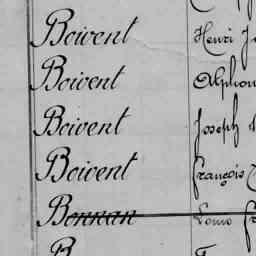 Boivent Henri
Boivent Alphon
Boivent Joseph
Boivent François
Bonnan Louis
B